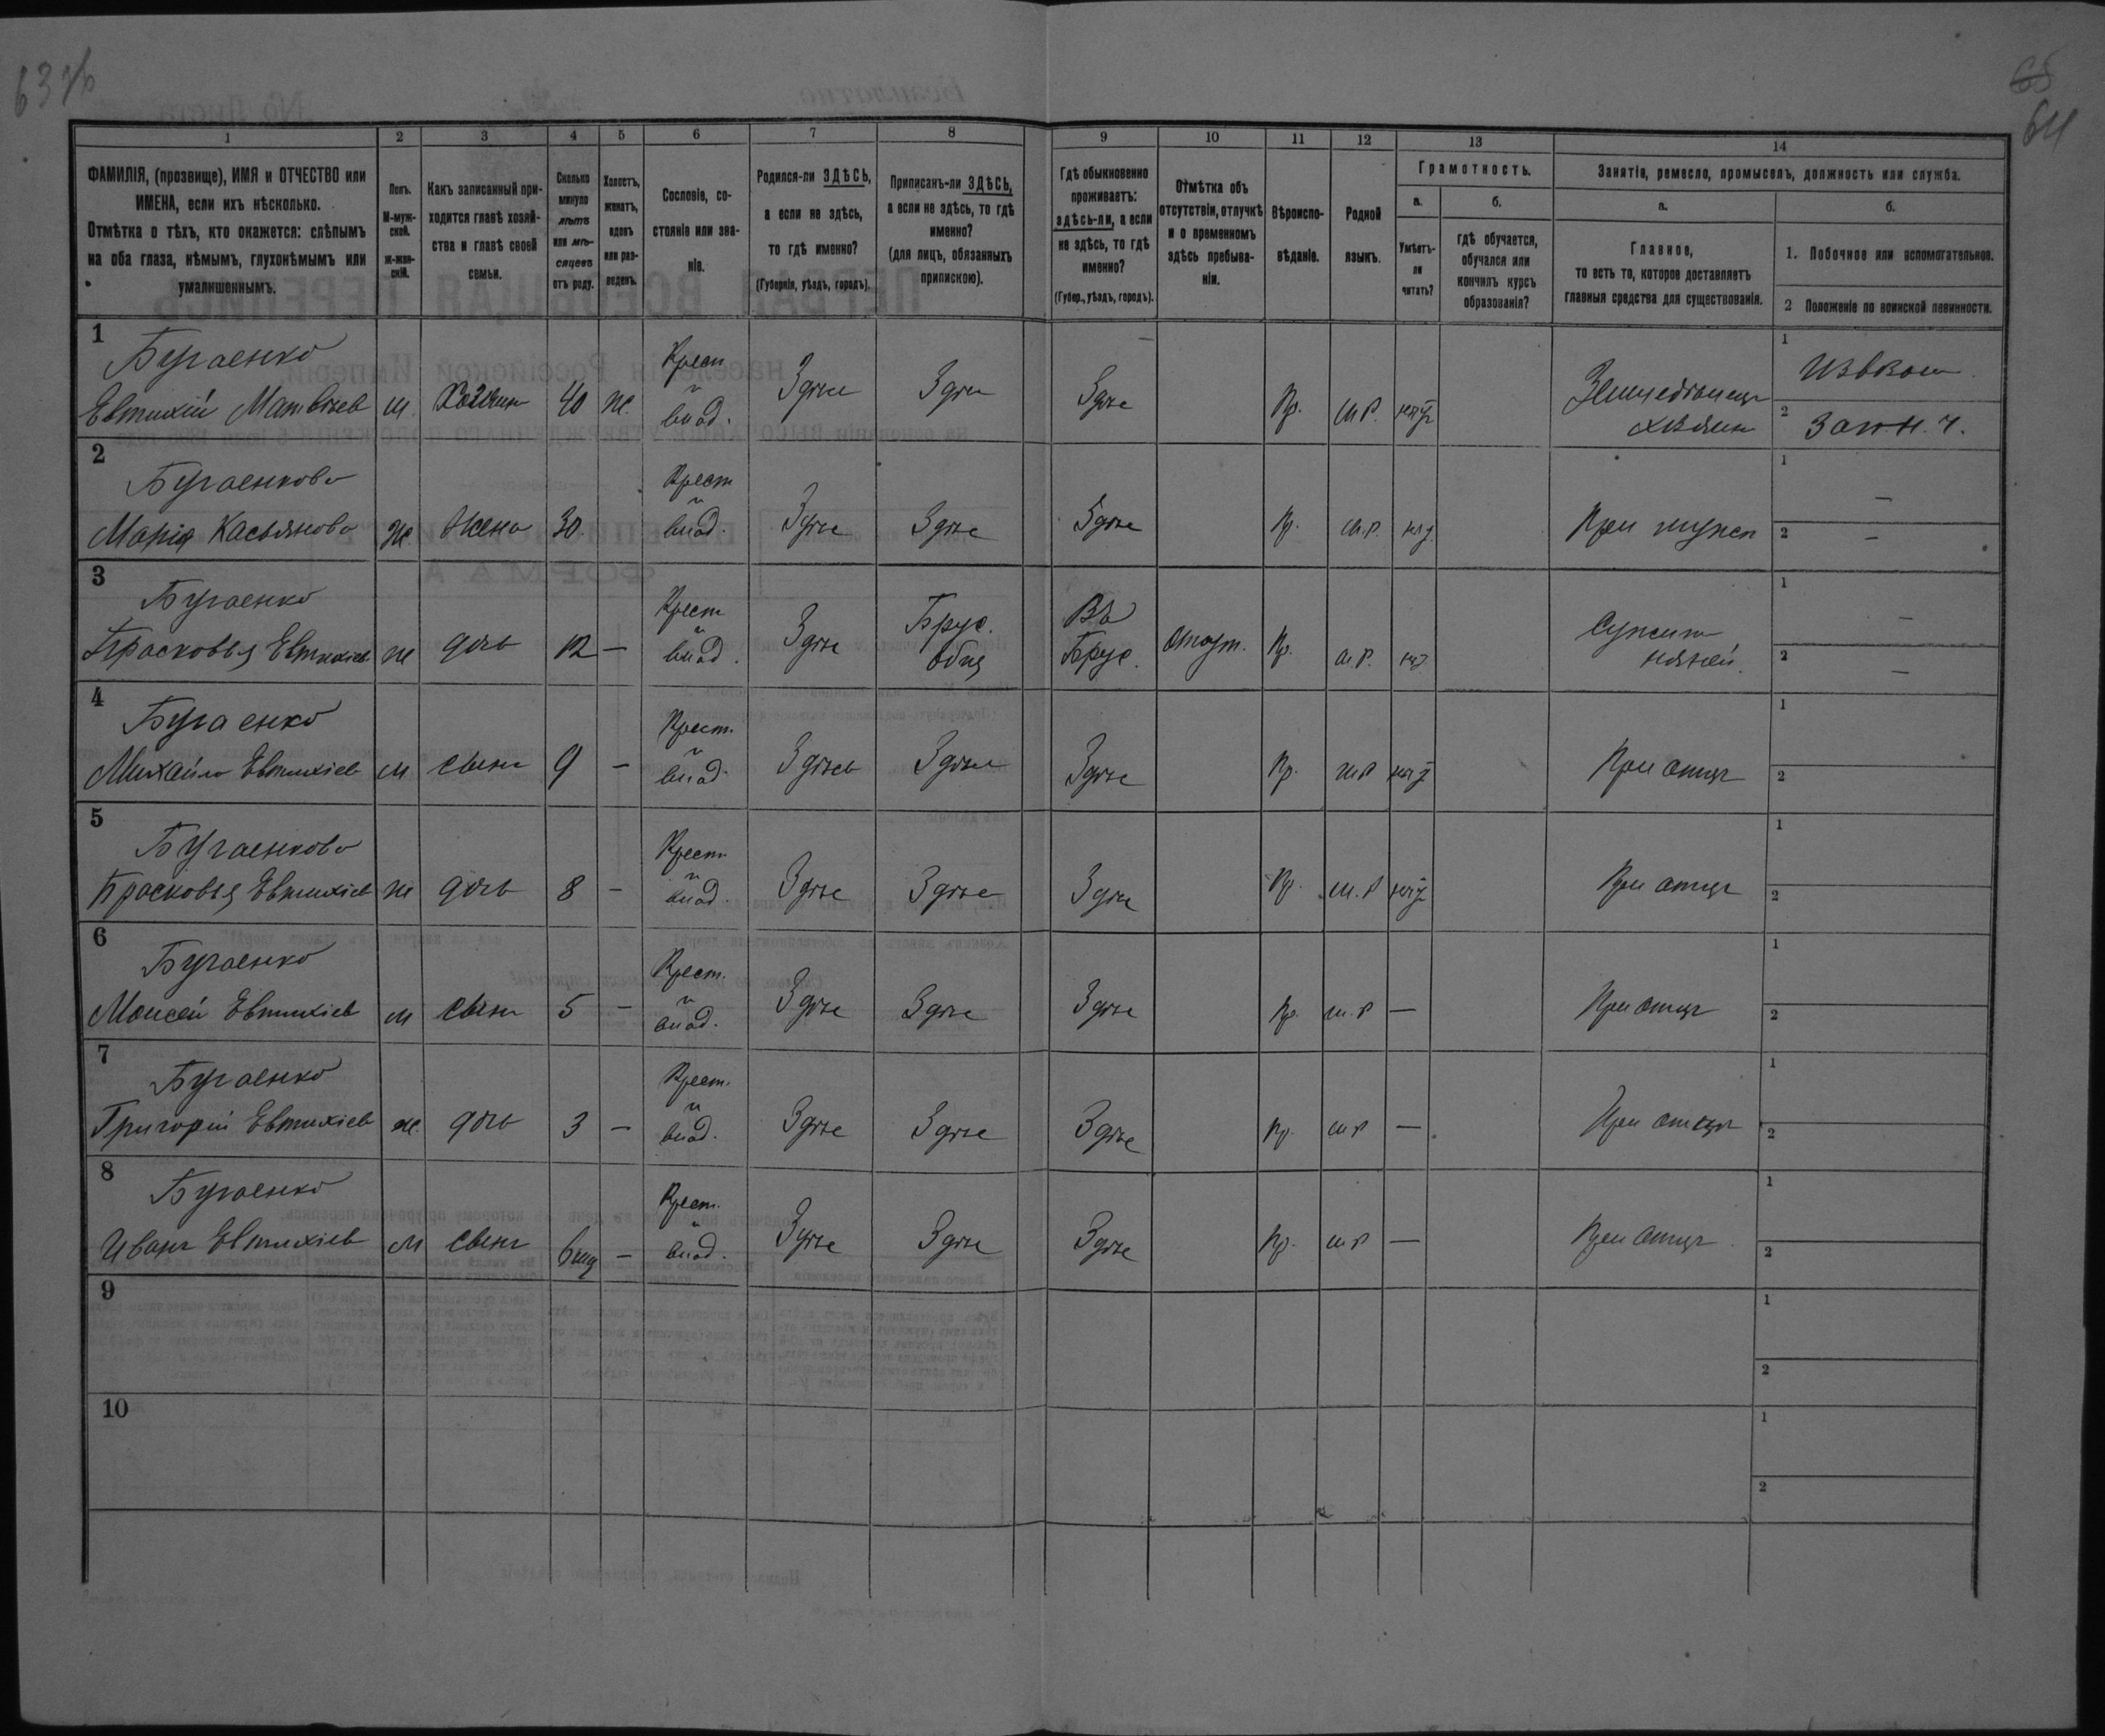 65
64
1
2
3
4
5
6
7
8
9
10
11
12
13
14
ФАМИЛІЯ, (прозвище), ИМЯ и ОТЧЕСТВО или
ИМЕНА, если ихъ нѣсколько.
Отмѣтка о тѣхъ, кто окажется: слѣпымъ
на оба глаза, нѣмымъ, глухонѣмымъ или
умалишеннымъ.
Полъ.
М-муж-
ской.
Ж-жен-
скій.
Какъ записанный при-
ходится главѣ хозяй-
ства и главѣ своей
семьи.
Сколько
минуло
лѣтъ
или мѣ-
сяцевъ
отъ роду.
Холостъ,
женатъ,
вдовъ
или раз-
веденъ.
Сословіе, со-
стояніе или зва-
ніе.
Родился-ли ЗДѢСЬ,
а если не здѣсь,
то гдѣ именно?
(Губернія, уѣздъ, городъ).
Приписанъ-ли ЗДѢСЬ,
а если не здѣсь, то гдѣ
именно?
(для лицъ, обязанныхъ
припискою).
Гдѣ обыкновенно
проживаетъ:
здѣсь-ли, а если
не здѣсь, то гдѣ
именно?
(Губер., уѣздъ, городъ).
Отмѣтка объ
отсутствіи, отлучкѣ
и о временномъ
здѣсь пребыва-
ніи.
Вѣроиспо-
вѣданіе.
Родной
языкъ.
Грамотность.
а.
Умѣетъ-
ли
читать?
б.
гдѣ обучается,
обучался или
кончилъ курсъ
образованія?
Занятія, ремесло, промыселъ, должность или служба.
а.
Главное,
то есть то, которое доставляетъ
главныя средства для существованія.
б.
1. Побочное или вспомогательное.
2 Положеніе по воинской повинности.
1
Бугаенко
Евтихій Матвѣев м. Хозяин 40 ж.
Крест
и
влад.
Здѣсь Здѣсь Здѣсь Пр. м.р. нѣт
Земледѣлецъ
хозяин
1 Извозом
2
2
Бугаенкова
Марія Касьянова ж. Жена 30.
Крест
и
влад.
Здѣсь Здѣсь Здѣсь Пр. м.р. нѣт При мужѣ
1 –
2 –
3
Бугаенко
Прасковья Евтихіев ж дочь 12 –
Крест
и
влад.
Здѣсь
Брус.
общ
Въ
Брус.
отсут. Пр. м.р. нѣт
Служит
няней.
1 –
2 –
4
Бугаенко
Михайло Евтихіев м сынъ 9 –
Крест.
и
влад.
Здѣсь Здѣсь Здѣсь Пр. м.р нѣт При отцѣ
1
2
5
Бугаенкова
Прасковья Евтихіев ж дочь 8 –
Крест
и
влад.
Здѣсь Здѣсь Здѣсь Пр. м.р нѣт При отцѣ
1
2
6
Бугаенко
Моисей Евтихіев м сынъ 5 –
Крест.
и
влад.
Здѣсь Здѣсь Здѣсь Пр. м.р – При отцѣ
1
2
7
Бугаенко
Григорій Евтихіев ж. дочь 3 –
Крест.
и
влад.
Здѣсь Здѣсь Здѣсь Пр. м р – При отцѣ
1
2
8
Бугаенко
Иванъ Евтихіев м сынъ 6 мц –
Крест.
и
влад.
Здѣсь Здѣсь Здѣсь Пр. м р – При отцѣ
1
2
9
1
2
10
1
2